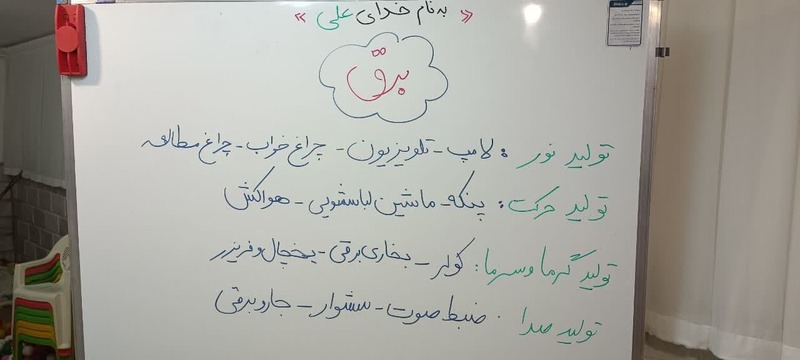 « به نام خدای علی »
برق
تولید نور : لامپ - تلویزیون - چراغ خواب - چراغ مطالعه
تولید حرکت : پنکه - ماشین لباسشویی - هواکش
تولید گرما و سرما : کولر - بخاری برقی - یخچال و فریزر
تولید صدا : ضبط صوت - سشوار - جارو برقی